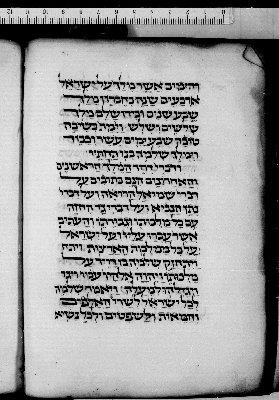 והימים אשר מלך על ישראל
ארבעים שנה בחברון מלך
שבע שנים ובירושלם מלך
שלשים ושלוש וימת בשיבה
טובה שבע ימים עשר וכבוד
וימלך שלמה בנו תחתיו
ודברי דויד המלך הראשנים
והאחרנים הנם כתובים על
דברי שמואל הראה ועל דברי
נתן הנביא ועל דברי גד החזה
עם כל מלכותו וגבורתו והעתים
אשר עברו עליו ועל ישראל
ועל כל ממלכות הארצות
ויתחזק שלמה בן דויד על
מלכותו ויהוה אלהיו עמו
ויגדלהו למעלה ויאמר שלמה
לכל ישראל לשרי האלפים
והמאות ולשפטים ולכל נשיא